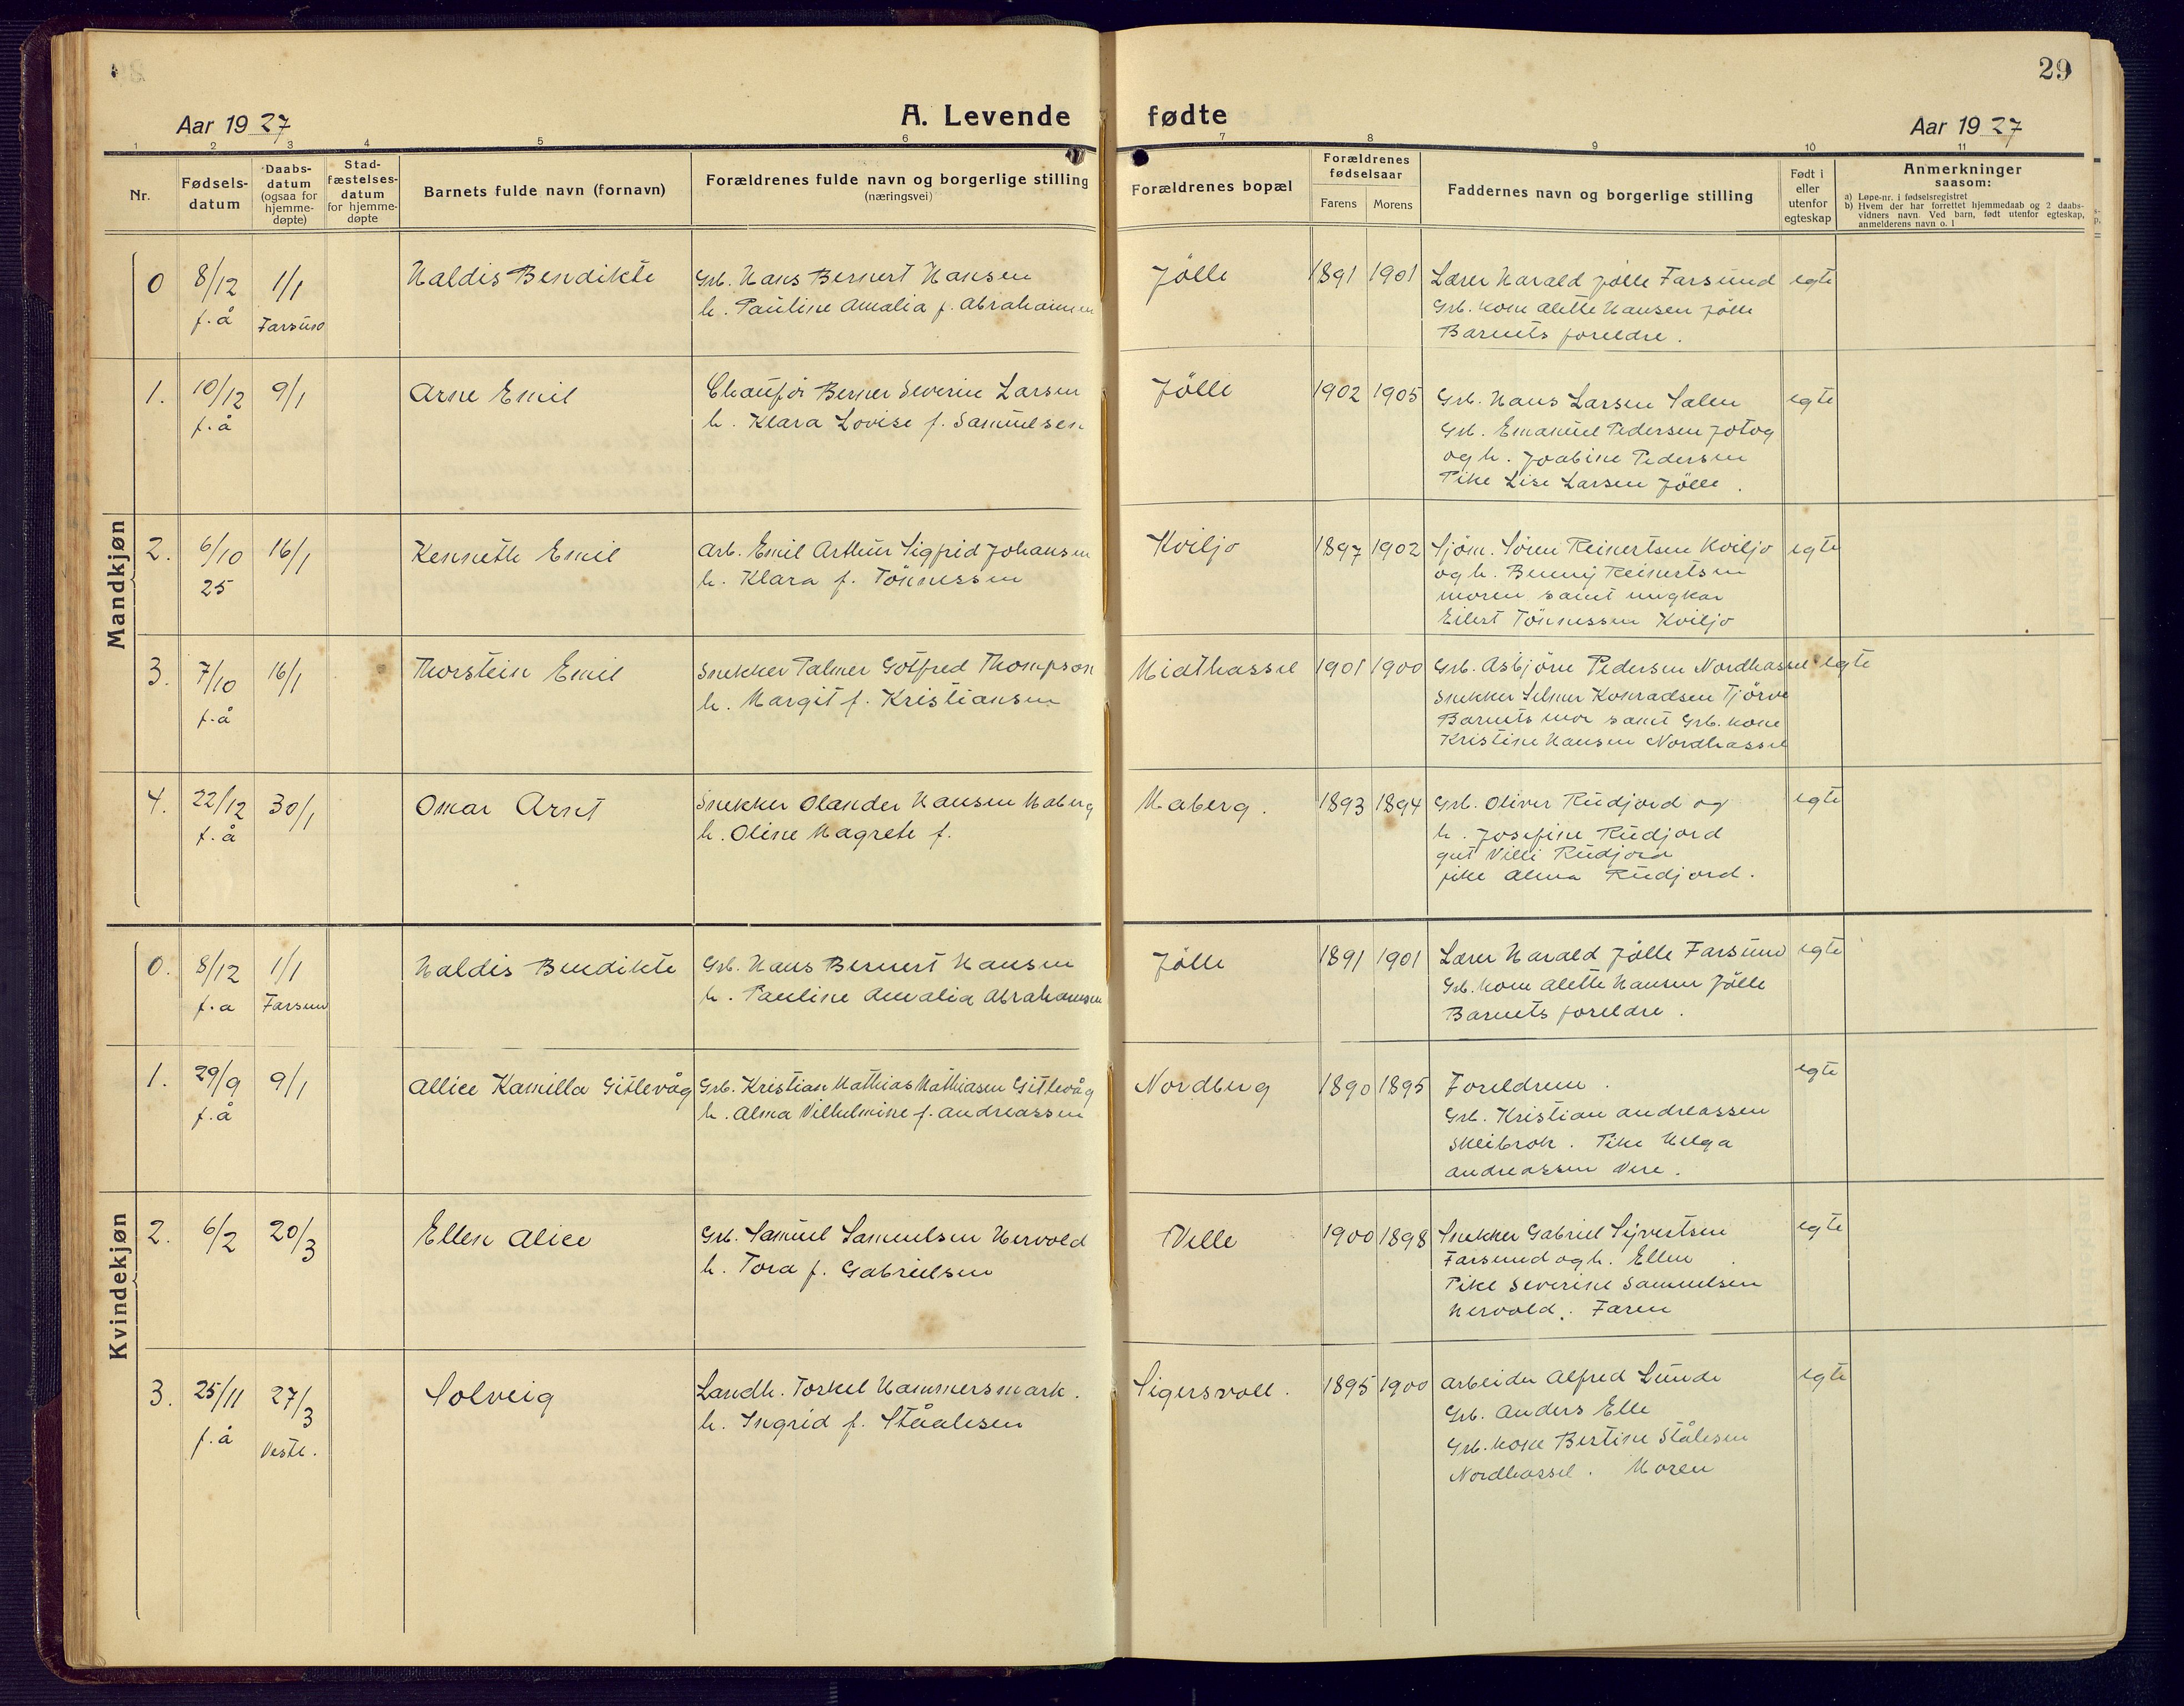 29
A. Levende fødte
Aar 1927
Aar 1927
1 2 3 4 5 6 7 8 9 10 11
Nr.
Fødsels-
datum
Daabs-
datum
(ogsaa for
hjemme-
døpte)
Stad-
fæstelses-
datum
for hjemme-
døpte
Barnets fulde navn (fornavn)
Forældrenes fulde navn og borgerlige stilling
(næringsvei)
Forældrenes bopæl
Forældrenes
fødselsaar
Farens Morens
Faddernes navn og borgerlige stilling
Født i
eller
utenfor
egteskap
Anmerkninger
saasom:
a) Løpe-nr. i fødselsregistret
b) Hvem der har forrettet hjemmedaab og 2 daabs-
vidners navn. Ved barn, født utenfor egteskap,
anmelderens navn o. l
Mandkjøn
0 8/12 1/1 Haldis Bendikte Grb. Hans Bernert Hansen Jølle 1891 1901 Lærer Harald Jølle Farsund egte
f.å Farsund h. Pauline Amalia f. Abrahamsen Grb. kone Alette Hansen Jølle
Barnets foreldre.
1. 10/12 9/1 Arne Emil Chauför Berner Severin Larsen Jølle 1902 1905 Grb. Hans Larsen Salen egte
f.å h. Klara Lovise f. Samuelsen Grb. Emanuel Pedersen Jotog
og h. Joabine Pedersen
Pike Lise Larsen Jølle.
2. 6/10 16/1 Kenneth Emil Arb. Emil Arthur Sigfrid Johansen Kviljo 1897 1902 Sjøm. Søren Reinertsen Kviljo egte
25 h. Klara f. Tönnessen og h. Benny Reinertsen
moren samt ungkar
Eilert Tönnessen Kviljo
3. 7/10 16/1 Thorstein Emil Snekker Palmer Gotfred Thompson Midthassel 1901 1900 Grb. Asbjörn Pedersen Nordhassel egte
f.å h. Margit f. Kristiansen Snekker Selmer Konradsen Tjörve
Barnets mor samt Grb. kone
Kristine Hansen Nordhassel
4. 22/12 30/1 Omar Arnt Snekker Olander Hansen Haberg Haberg. 1893 1894 Grb. Oliver Rudjord og egte
f.å h. Oline Magrete f. h. Josefine Rudjord
gut Villi Rudjord
pike Alma Rudjord.
Kvindekjøn
0. 8/12 1/1 Haldis Bendikte Grb. Hans Bernert Hansen Jølle 1891 1901 Lærer Harald Jølle Farsund egte
f.a Farsund h. Pauline Amalia Abrahamsen Grb. kone Alette Hansen Jølle
Barnets foreldre.
1. 29/9 9/1 Allice Kamilla Gitlevåg Grb. Kristian Mathias Mathiasen Gitlevåg Nordberg 1890 1895 Foreldrene. egte
f.å h. Alma Vilhelmine f. Andreassen Grb. Kristian Andreassen
Skeibrok. Pike Helga
Andreassen Vere.
2. 6/2 20/3 Ellen Alice Grb. Samuel Samuelsen Hervold Velle 1900 1898 Snekker Gabriel Sejvertsen egte
h. Tora f. Gabrielsen Farsund og h. Ellen
Pike Severine Samuelsen
Hervold. Faren
3. 25/11 27/3 Solveig Landh. Torkel Hammersmark. Sigersvoll. 1895 1900 Arbeider Alfred Lunde egte
f.å Vestl. h. Ingrid f. Ståalesen Grb. Anders Elle
Grb. kone Bertine Stålesen
Nordhassel. Moren